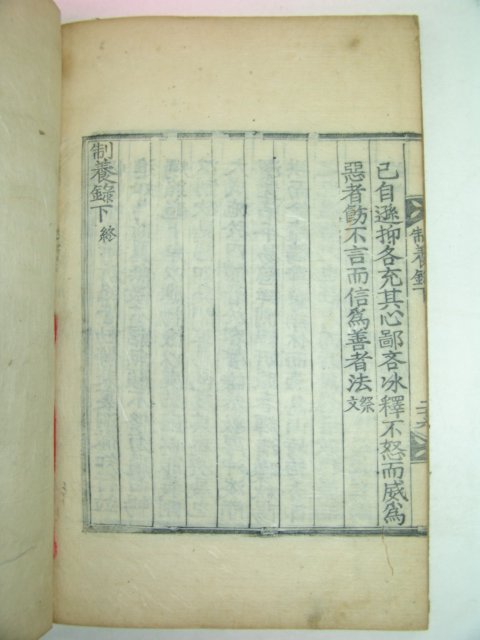 制養錄下
己自遜抑各充其心鄙吝冰釋不怒而威爲
惡者飭不言而信爲善者法祭文
制養錄下終